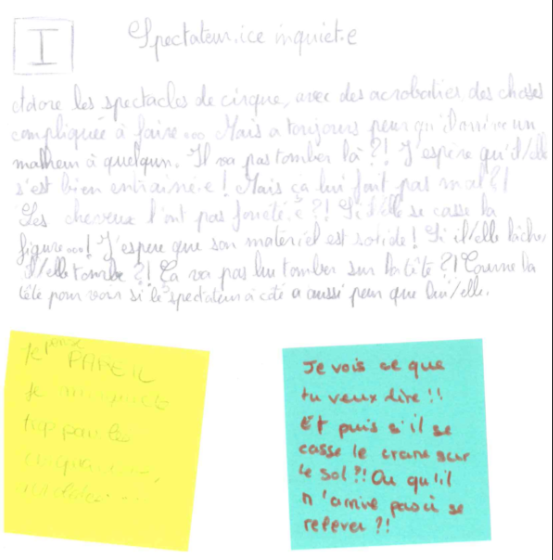 I
Spectateur.ice inquiet.e
Adore les spectacles de cirque, avec des acrobaties, des choses
compliquée à faire... Mais a toujours peur qu'il arrive un
malheur à quelqun. Il va pas tomber là ?! J'espère qu'il/elle
s'est bien entrainé.e ! Mais ça lui fait pas mal ?!
Ses cheveux l'ont pas !? Si il/elle se casse la
figure...! J'espere que son matériel est solide ! Si il/elle lâche,
il/elle tombe ?! Ça va pas lui tomber sur la tête ?! Tourne la
tête pour voir si le spectateur à coté a aussi peur que lui/elle.
PAREIL
je m'inquiète
trop pour les
Je vois ce que
tu veux dire !!
Et puis s'il se
casse le crane sur
le sol ?! Ou qu'il
n'arrive pas à se
relever ?!